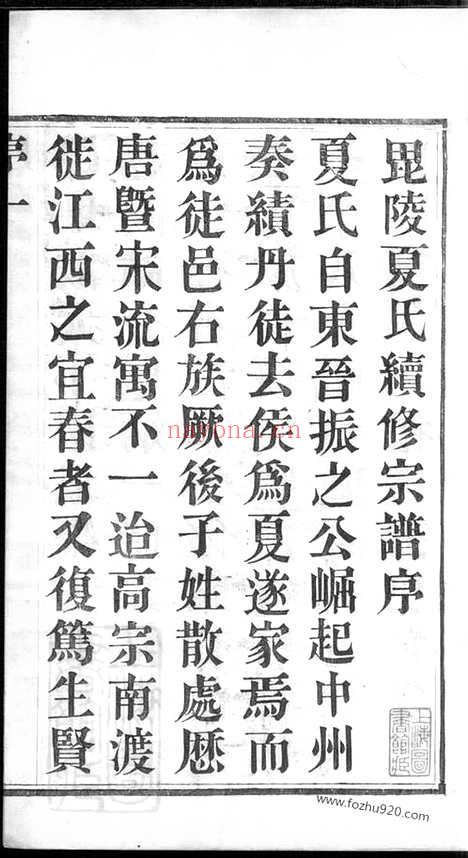 毘陵夏氏續修宗譜序
夏氏自東晉振之公崛起中州
奏績丹徒去侯爲夏遂家焉而
爲徒邑右族厥後子姓散處歷
唐暨宋流寓不一迨高宗南渡
徙江西之宜春者又復篤生賢
序一
上海圖書館藏
nayona.cn
www.fozhu920.com